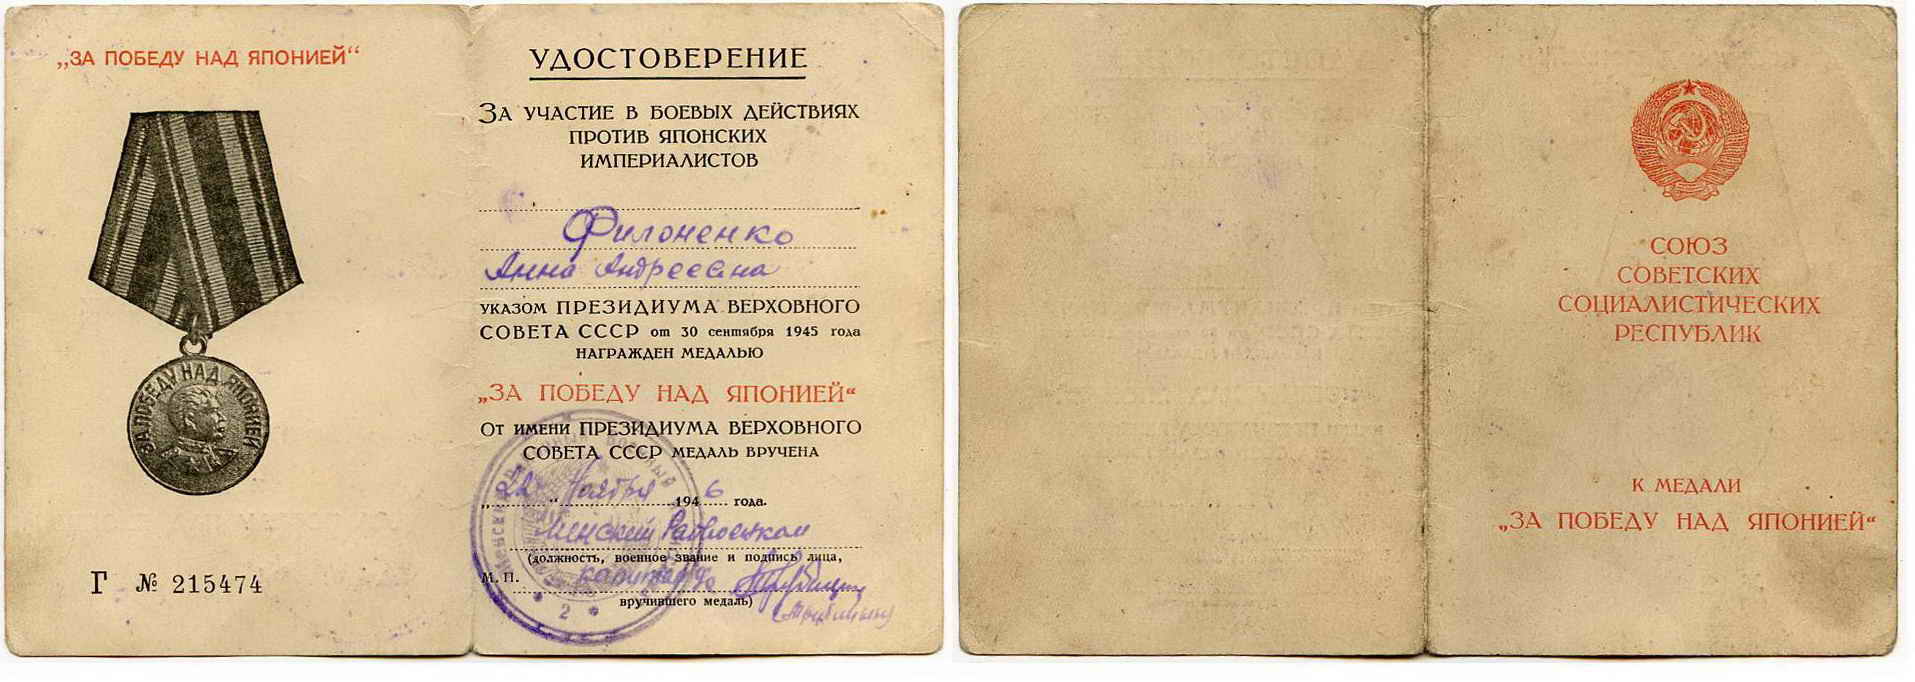 „ЗА ПОБЕДУ НАД ЯПОНИЕЙ“
ЗА ПОБЕДУ НАД ЯПОНИЕЙ
Г № 215474
УДОСТОВЕРЕНИЕ
ЗА УЧАСТИЕ В БОЕВЫХ ДЕЙСТВИЯХ
ПРОТИВ ЯПОНСКИХ
ИМПЕРИАЛИСТОВ
Филоненко
Анна Андреевна
УКАЗОМ ПРЕЗИДИУМА ВЕРХОВНОГО
СОВЕТА СССР от 30 сентября 1945 года
НАГРАЖДЕН МЕДАЛЬЮ
„ЗА ПОБЕДУ НАД ЯПОНИЕЙ“
ОТ ИМЕНИ ПРЕЗИДИУМА ВЕРХОВНОГО
СОВЕТА СССР МЕДАЛЬ ВРУЧЕНА
„22“ Ноября 1946 года.
Райвоенком
(должность, военное звание и подпись лица,
М. П.
вручившего медаль)
2
СОЮЗ
СОВЕТСКИХ
СОЦИАЛИСТИЧЕСКИХ
РЕСПУБЛИК
К МЕДАЛИ
„ЗА ПОБЕДУ НАД ЯПОНИЕЙ“